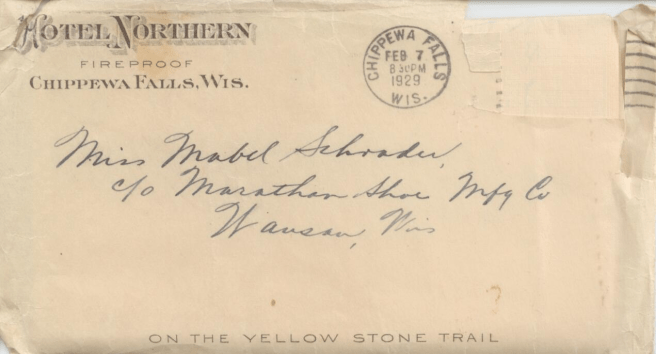 HOTEL NORTHERN
FIREPROOF
CHIPPEWA FALLS, WIS.
CHIPPEWA FALLS
FEB 7
8 30 PM
1929
WIS.
Miss Mabel Schrader,
c/o Marathon Shoe Mfg Co
Wausau, Wis
ON THE YELLOW STONE TRAIL